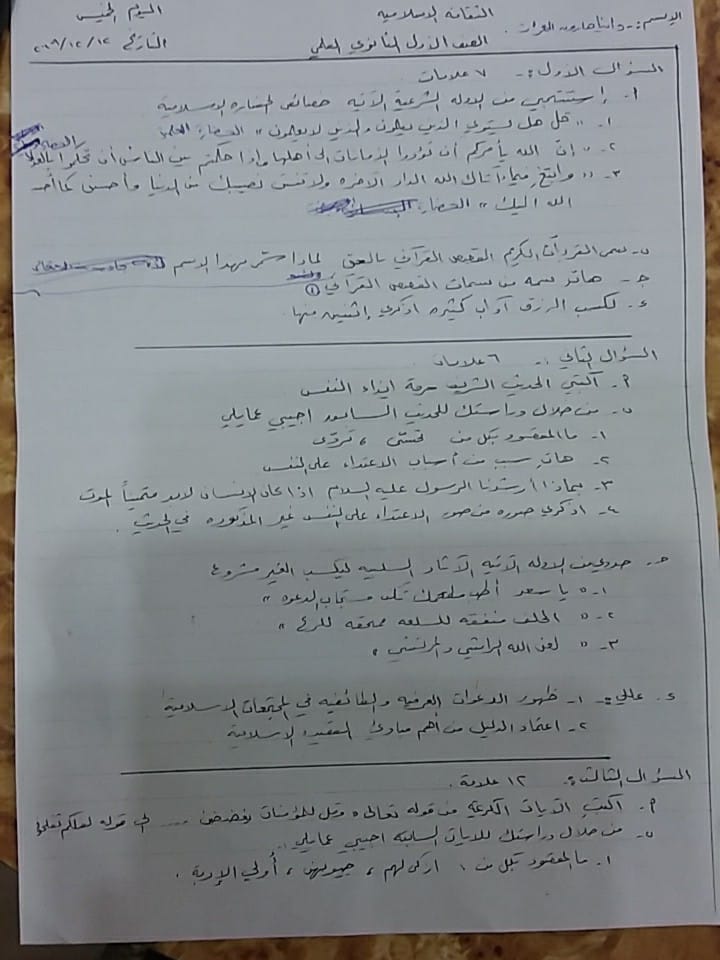 الثقافة الإسلامية
اليوم الخميس
الإسم:-
الصف الأول الثانوي العلمي
التاريخ ١٢/١٢
السؤال الأول:- ٧ علامات
أ. إستنتجي من الادله الشرعية الآتيه خصائص الحضاره الإسلاميه
١- " قل هل يستوي الذين يعلمون والذين لا يعلمون "
٢- " إن الله يأمركم أن تؤدوا الأمانات إلى أهلها وإذا حكمتم بين الناس أن تحكموا بالعدل
٣- " وابتغ فيما آتاك الله الدار الآخره ولا تنس نصيبك من الدنيا وأحسن كما أحسن
الله اليك "
ب- سمى القرءان الكريم القصص القرآني بالحق لماذا سمي بهذا الاسم
ج- هات سمه من سمات القصص القرآني
د- لكسب الرزق آداب كثيره اذكري إثنين منها.
السؤال الثاني:- ٦ علامات
أ- اكتبي الحديث الشريف حرمة ايذاء النفس
ب- من خلال دراستك للحديث السابق اجيبي عما يلي
١- ما المقصود بكل من تحسّى ، تردّى
٢- هات سبب من أسباب الاعتداء على النفس
٣- بماذا أرشدنا الرسول عليه السلام اذا كان الإنسان لابد متمنياً الموت
٤- اذكري صوره من صور الاعتداء على النفس غير المذكوره في الحديث.
ج- حددي من الادله الآتيه الآثار السلبيه للكسب الغير مشروع
١- " يا سعد أطب مطعمك تكن مستجاب الدعوه "
٢- " الحلف منفقه للسلعه ممحقه للربح "
٣- " لعن الله الراشي والمرتشي "
د. عللي:- ١- ظهور الدعوات العرقيه والطائفيه في المجتمعات الاسلاميه
٢- اعتماد الدليل من أهم مبادئ العقيده الإسلاميه
السؤال الثالث:- ١٢ علامة.
أ- اكتبي الآيات الكريمة من قوله تعالى " وقل للمؤمنات يغضضن ..... الى قوله لعلكم تفلحون
ب- من خلال دراستك للآيات السابقه اجيبي عما يلي
١- ما المقصود بكل من ، أزكى لهم ، جيوبهن ، أُولي الإربة .